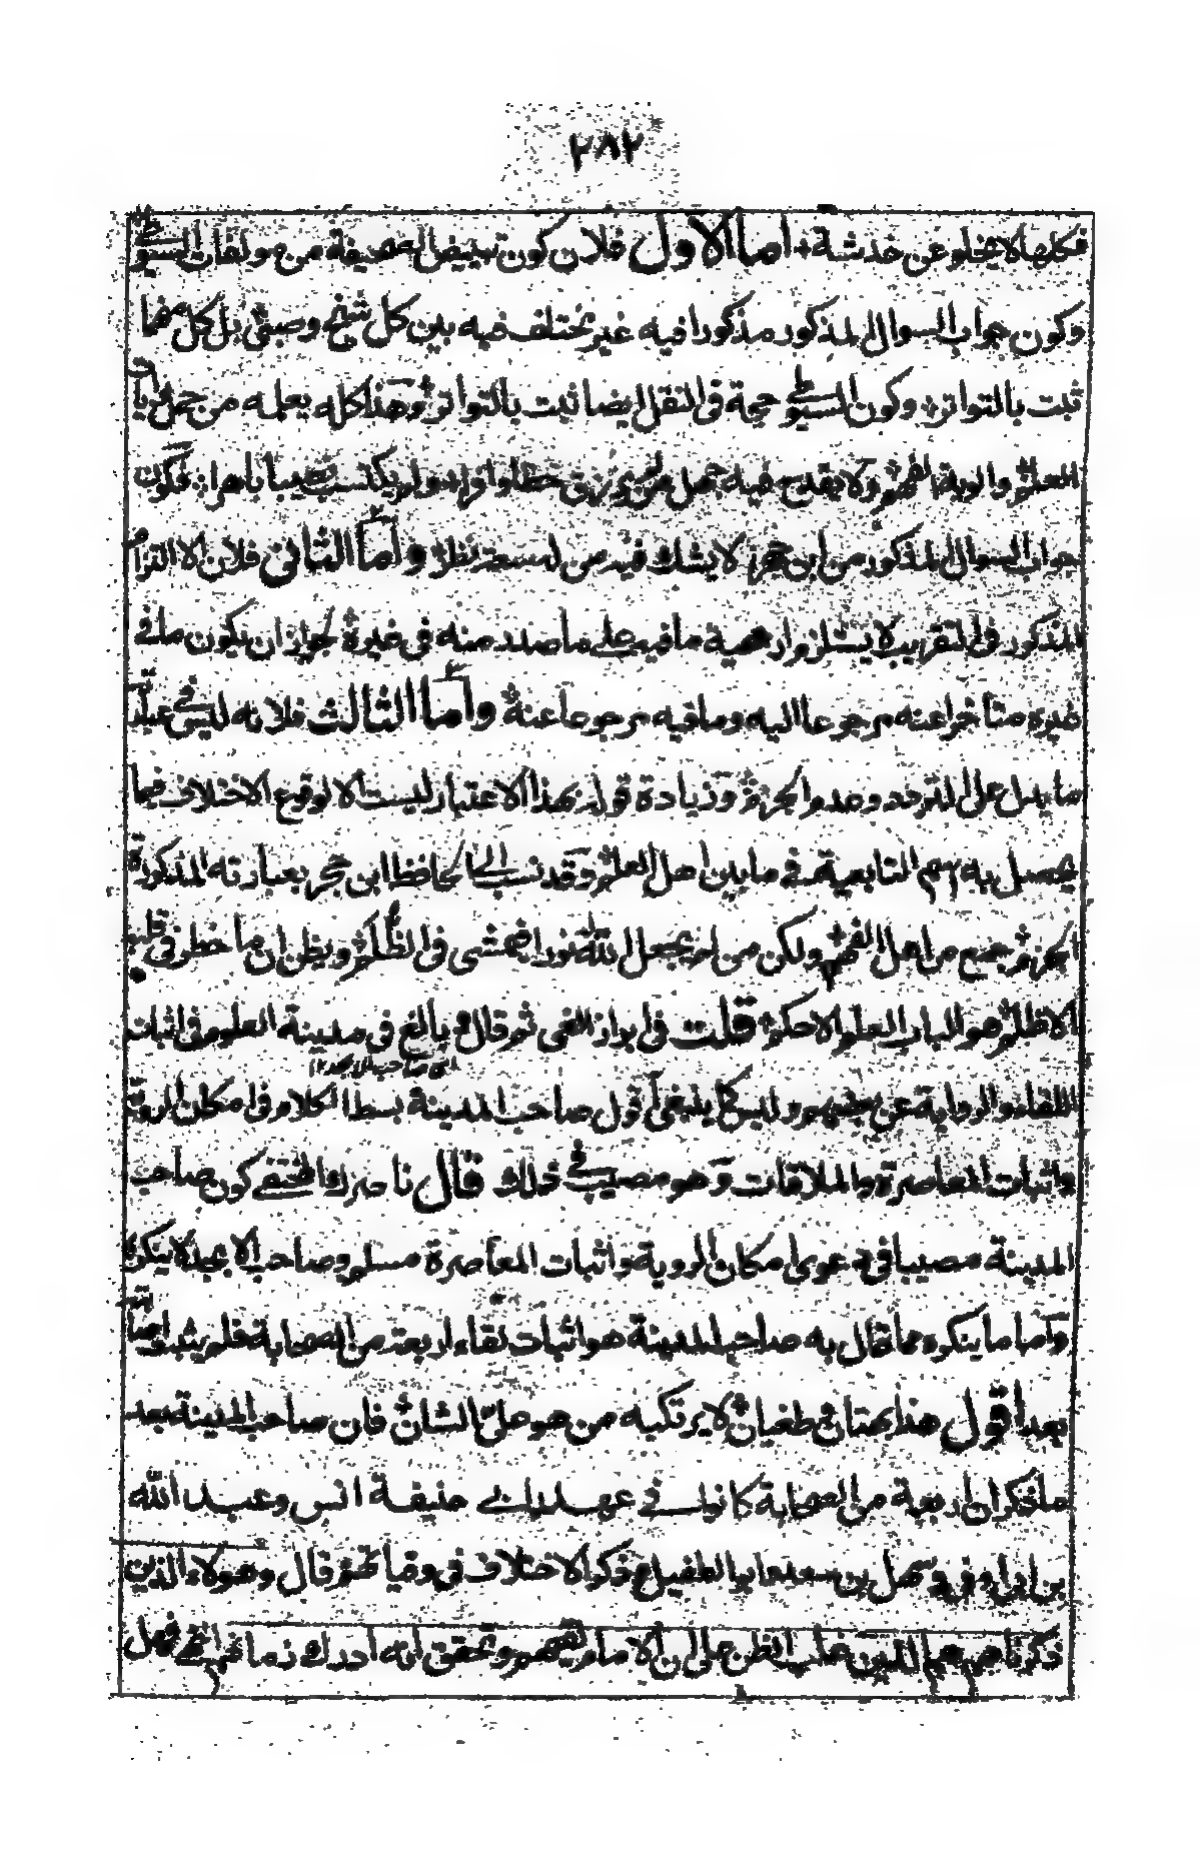 ٢٨٢
فكلها لا يخلو عن خدشة اما الاول فلان كون تبييض الصحيفة من مولفات السيوطي
وكون جواب السوال المذكور مذكورا فيه غير مختلف فيه بين كل شيخ وصبي بل كل منهما
ثبت بالتواتر وكون السيوطي حجة في النقل ايضا ثبت بالتواتر وهذا كله يعلمه من جمل في
العلم والوية الفهم ولا يقدح فيه جهل من لم يرزق حظا وافرا ولم يكتسب نصيبا باهرا فكون
جواب السوال المذكور من ابن حجر لا يشك فيه من له سعة نظر واما الثاني فلان الالتزام
المذكور في التقريب لا يستلزم ارجحية ما فيه على ما صدر منه في غيره لجواز ان يكون ما في
غيره متأخرا عنه مرجوعا اليه وما فيه مرجوعا عنه واما الثالث فلانه ليس في
ما يدل على التردد وعدم الجزم وزيادة قوله بهذا الاعتبار ليست الا لوقوع الاختلاف فيما
يحصل به اسم التابعية في ما بين اهل العلم وقد نسب الى الحافظ ابن حجر بعبارته المذكورة
الجزم جمع من اهل الفهم ولكن من لم يجعل الله له نورا فيمشي في الظلم ويظن ان ما خطر في قلبه
الاظلم هو الباب العلم الاحكم قلت في ابراز الغي ثم قال وبالغ في مدينة العلوم في اثبات
اى صاحب الابجد ١٢
اللقاء والرواية عن بعضهم وليس كما ينبغي اقول صاحب المدينة بسط الكلام في امكان الروية
واثبات المعاصرة والملاقات وهو مصيب في ذلك قال ناصرك المختفي كون صاحب
المدينة مصيبا في دعوى امكان الروية واثبات المعاصرة مسلم وصاحب الابجد لا ينكره
واما ما ينكره مما قال به صاحب المدينة هو اثبات لقاء اربعة من الصحابة فلم يثبت
بعد اقول هذا بهتان طغيان لا يرتكبه من هو علي الشان فان صاحب المدينة بعد
ما ذكر ان اربعة من الصحابة كانوا في عهد ابي حنيفة انس وعبد الله
بن ابي اوفى وسهل بن سعد وابو الطفيل وذكر الاختلاف في وفياتهم قال وهؤلاء الذين
ذكرناهم هم الذين غلب الظن على ان الامام لقيهم وتحقق انه ادرك زمانهم